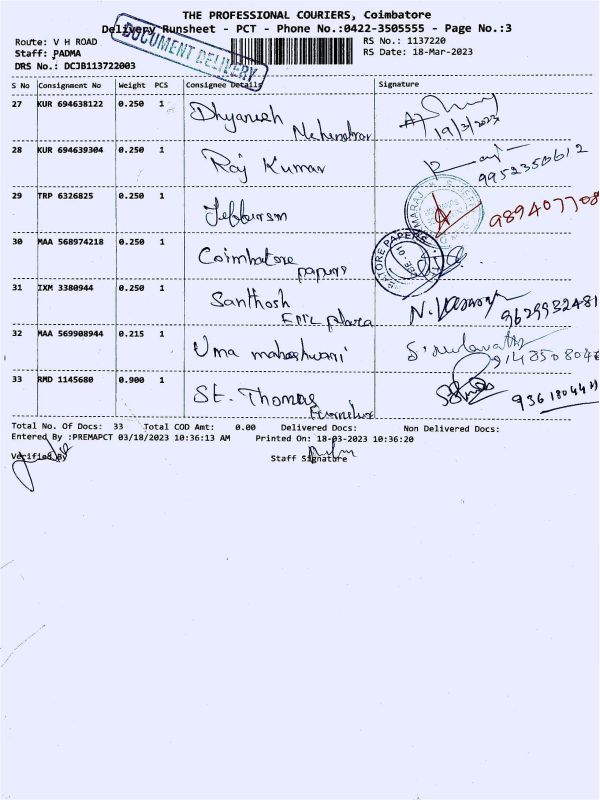 THE PROFESSIONAL COURIERS, Coimbatore
Delivery Runsheet - PCT - Phone No.:0422-3505555 - Page No.:3
Route: V H ROAD
Staff: PADMA
DRS No.: DCJB113722003
DOCUMENT DELIVERY
RS No.: 1137220
RS Date: 18-Mar-2023
S No Consignment No Weight PCS Consignee Details Signature
27 KUR 694638122 0.250 1 Dhyanesh
19/3/2023
28 KUR 694639304 0.250 1 Raj Kumar 9952350612
29 TRP 6326825 0.250 1
30 MAA 568974218 0.250 1 Coimbatore papers
31 IXM 3380944 0.250 1 Santhosh 9629932481
32 MAA 569908944 0.215 1 Uma maheshwari
33 RMD 1145680 0.900 1 St. Thomas
Total No. Of Docs: 33 Total COD Amt: 0.00 Delivered Docs: Non Delivered Docs:
Entered By :PREMAPCT 03/18/2023 10:36:13 AM Printed On: 18-03-2023 10:36:20
Verified By Staff Signature